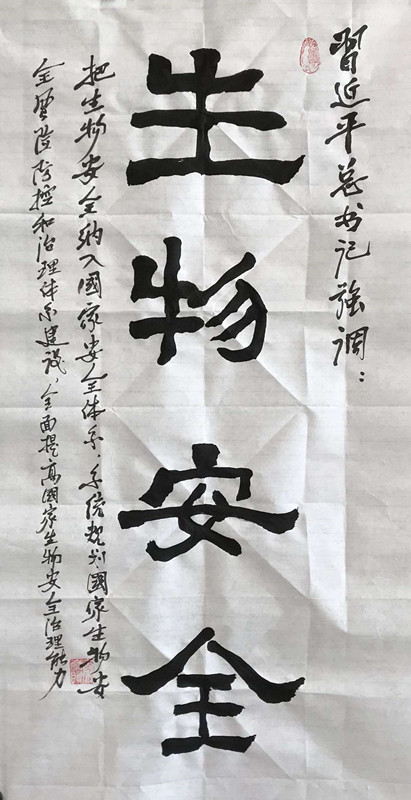 習近平总书记強调：
生物安全
把生物安全纳入國家安全体系，系统规划國家生物安
全风险防控和治理体系建设，全面提高國家生物安全治理能力